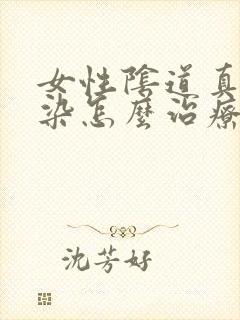 女性陰道真
染怎麼治療
沈芳好